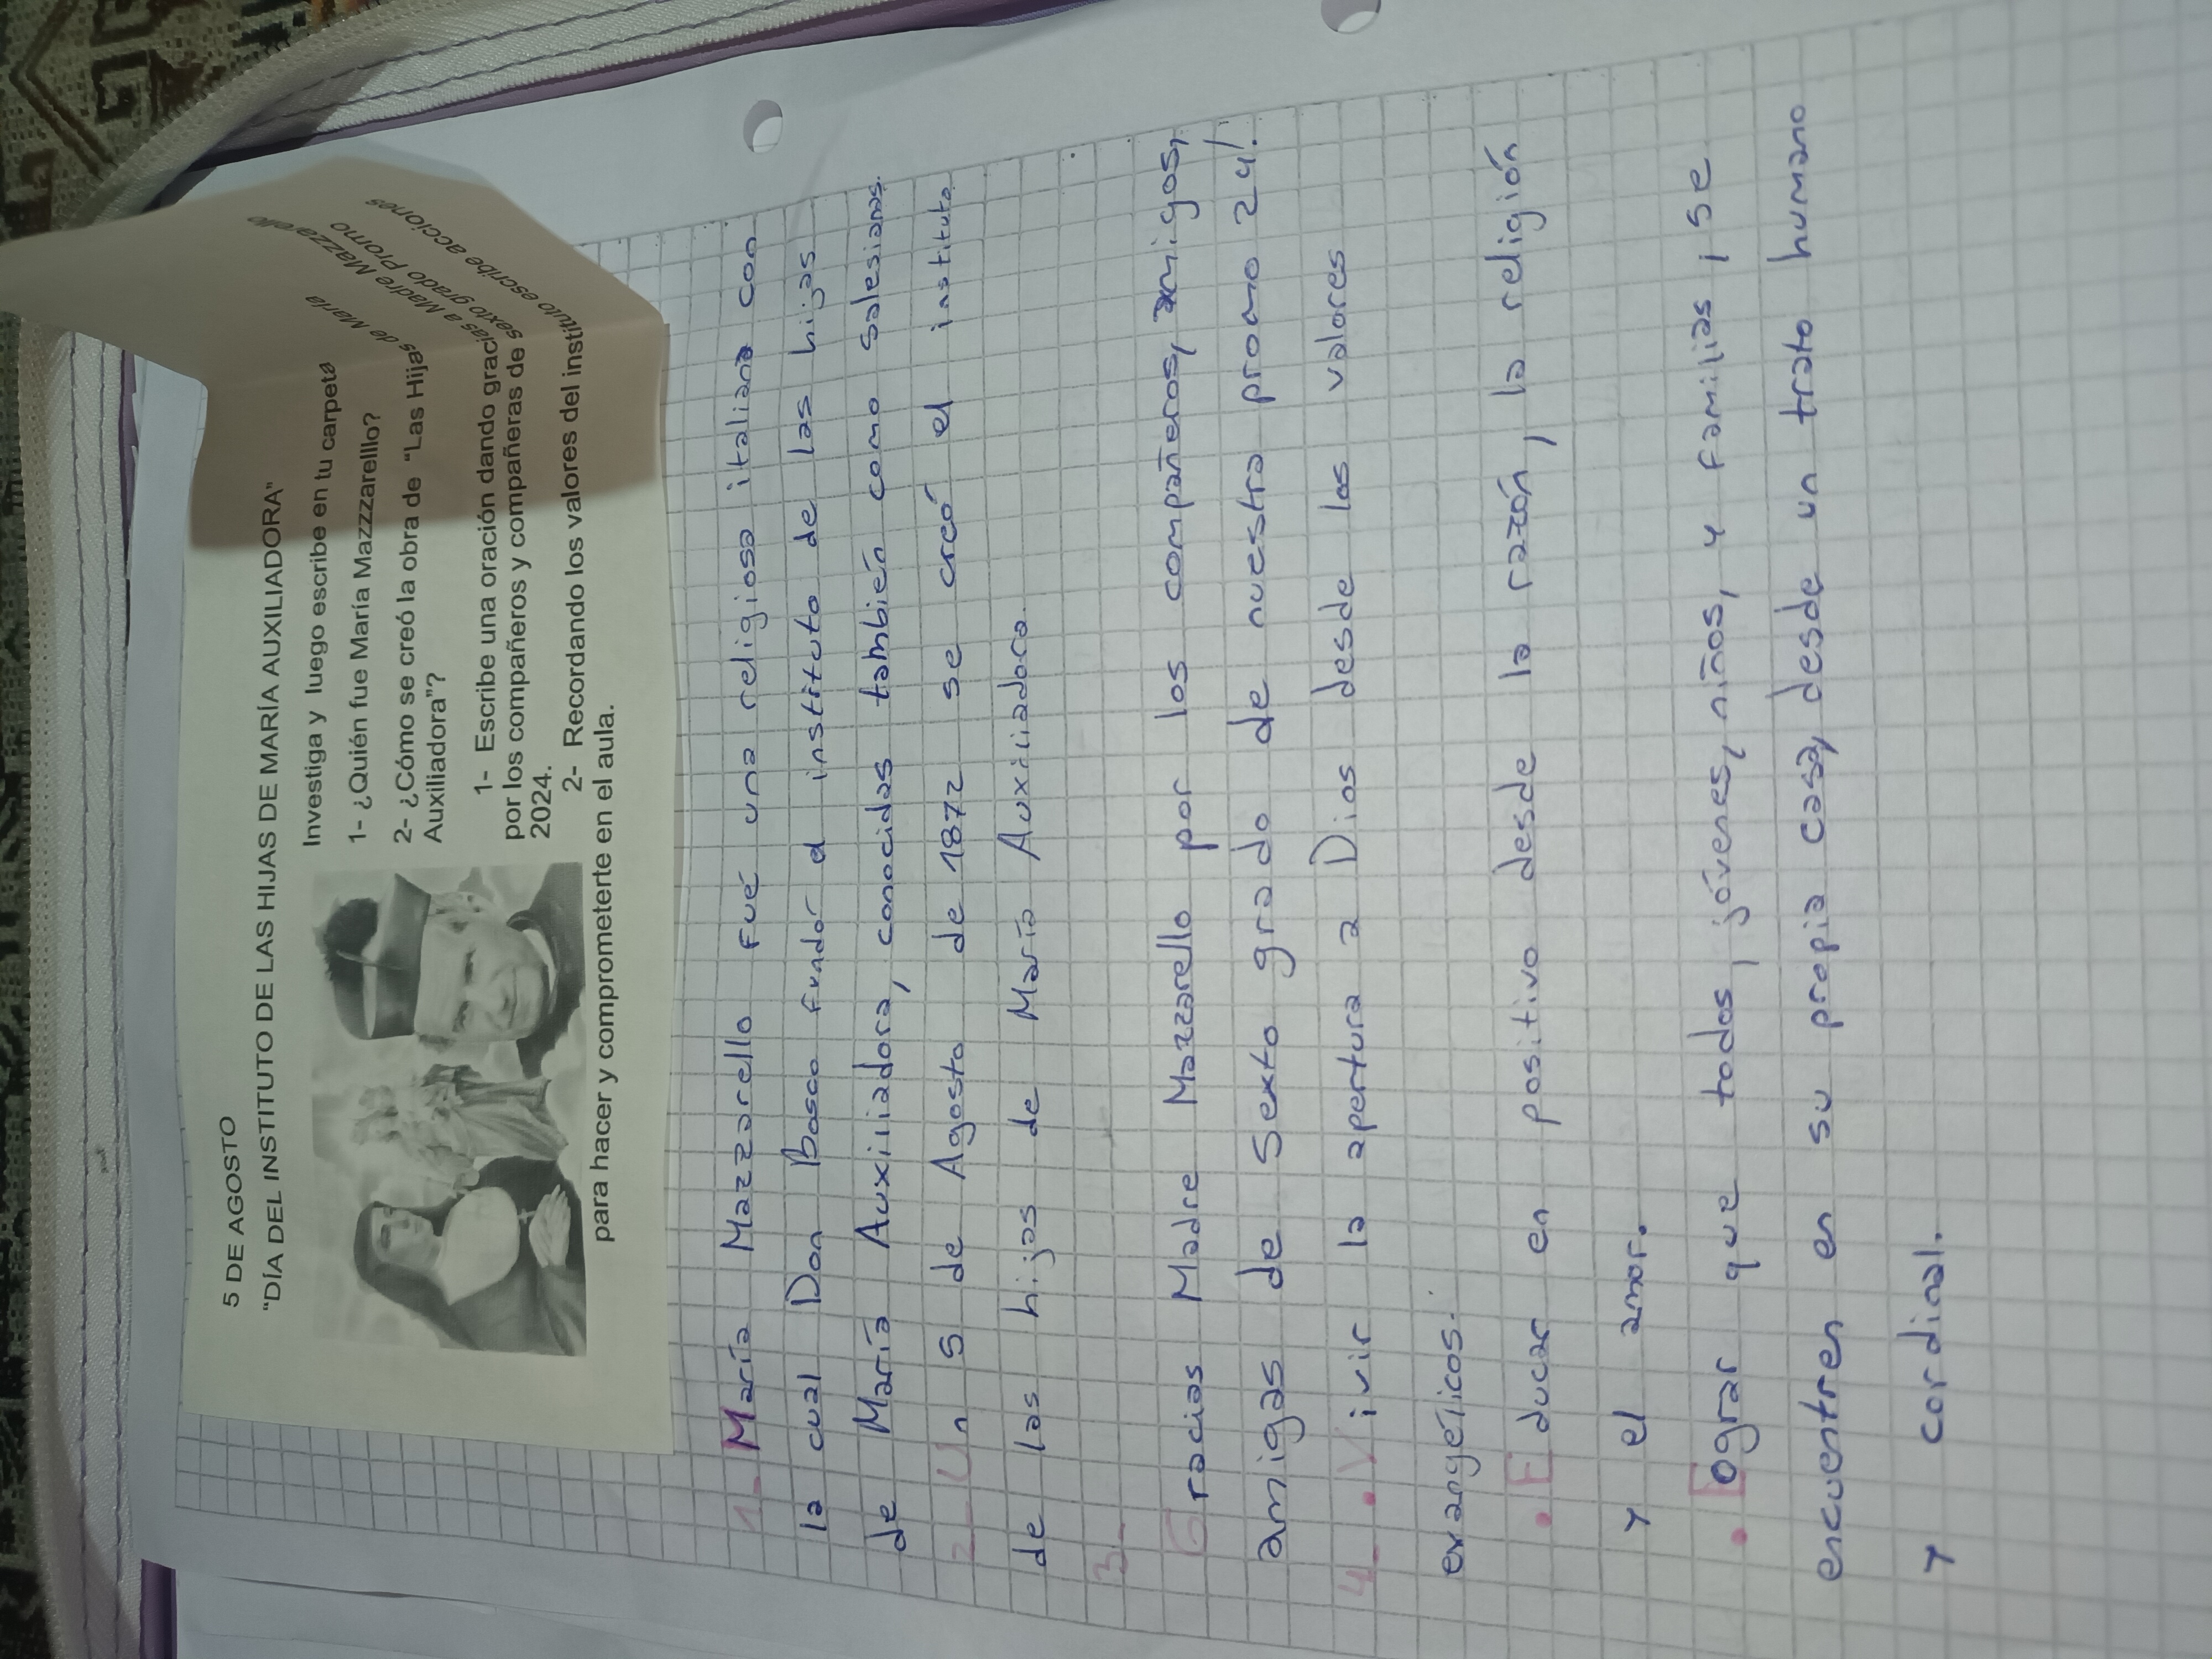 5 DE AGOSTO
"DÍA DEL INSTITUTO DE LAS HIJAS DE MARÍA AUXILIADORA"
Investiga y luego escribe en tu carpeta
1- ¿Quién fue María Mazzzarelllo?
2- ¿Cómo se creó la obra de "Las Hijas de María
Auxiliadora"?
1- Escribe una oración dando gracias a Madre Mazzarello
por los compañeros y compañeras de sexto grado Promo
2024.
2- Recordando los valores del instituto escribe acciones
para hacer y comprometerte en el aula.
1- María Mazzarello fué una religiosa italiana con
la cual Don Bosco fundor el instituto de las hijas
de María Auxiliadora, conocidas también como salesianas.
2- Un 5 de Agosto de 1872 se creó el instituto
de las hijas de María Auxiliadora.
3-
Gracias Madre Mazzarello por los compañeros, amigos,
amigas de Sexto grado de nuestra promo 24!
4- . Vivir la apertura a Dios desde los valores
evangélicos.
. Educar en positivo desde la razón, la religión
y el amor.
. Lograr que todos, jóvenes, niños, y familias, se
encuentren en su propia casa, desde un trato humano
y cordinal.